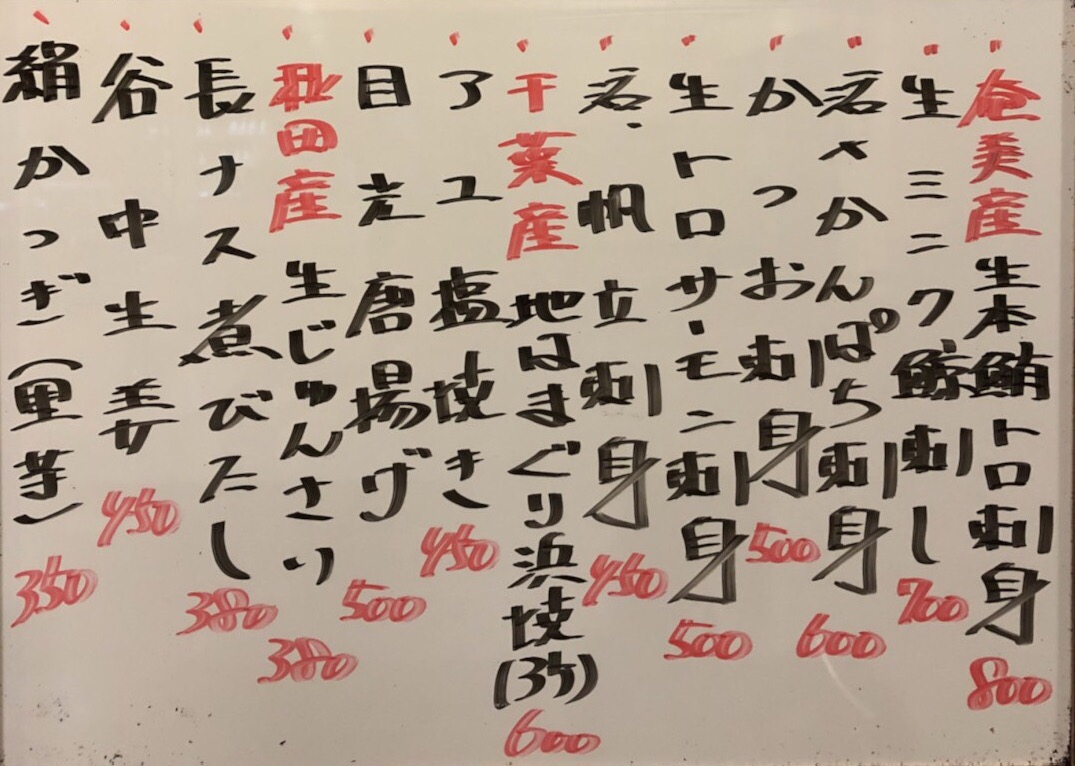 奄美産生本鮪トロ刺身 800
生ミンク鯨刺し 700
かんぱち刺身 600
かつお刺身 500
生トロサーモン刺身 500
帆立刺身 450
千葉産地はまぐり浜焼(3ケ) 600
アユ塩焼き 450
目光唐揚げ 500
秋田産生じゅんさい 380
長ナス煮びたし 380
谷中生姜 450
絹かつぎ(里芋) 350